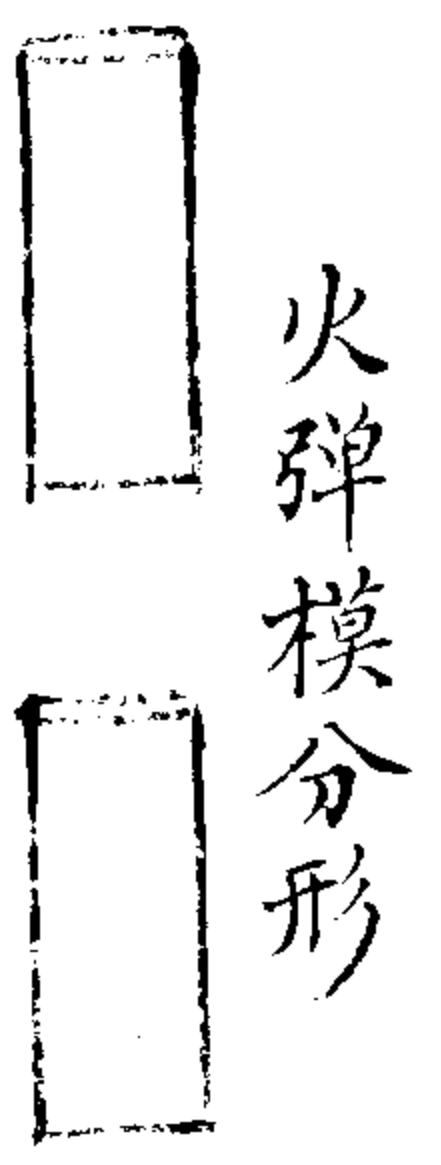 火弹模分形